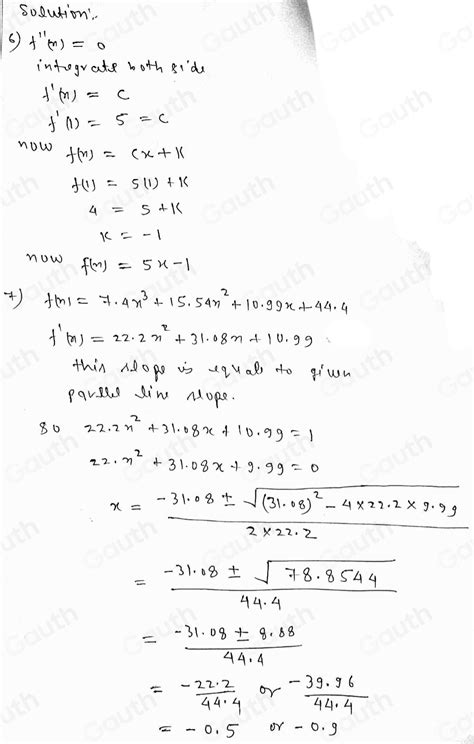 Solution:.
6) f''(x) = 0
integrate both side
f'(x) = C
f'(1) = 5 = C
now f(x) = Cx+K
f(1) = 5(1) + K
4 = 5+K
K = -1
now f(x) = 5x-1
7) f(x) = 7.4x³ + 15.54x² + 10.99x + 44.4
f'(x) = 22.2x² + 31.08x + 10.99
this slope is equal to given
parallel line slope.
So 22.2x² + 31.08x + 10.99 = 1
22.x² + 31.08x + 9.99 = 0
x = (-31.08 ± √((31.08)² - 4×22.2×9.99)) / (2×22.2)
= (-31.08 ± √(78.8544)) / 44.4
= (-31.08 ± 8.88) / 44.4
= -22.2/44.4 or -39.96/44.4
= -0.5 or -0.9
Gauth